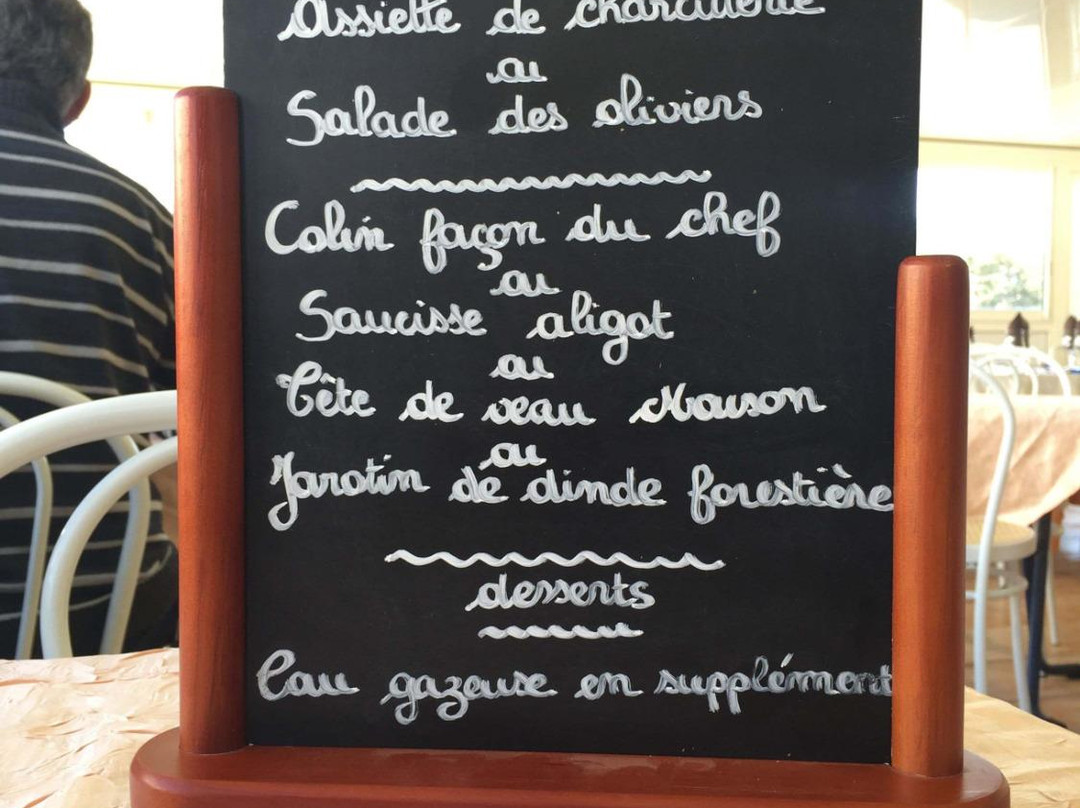 Assiette de charcuterie
ou
Salade des oliviers
Colin façon du chef
ou
Saucisse aligot
ou
Tête de veau Maison
ou
Jarotin de dinde forestière
desserts
Eau gazeuse en supplément